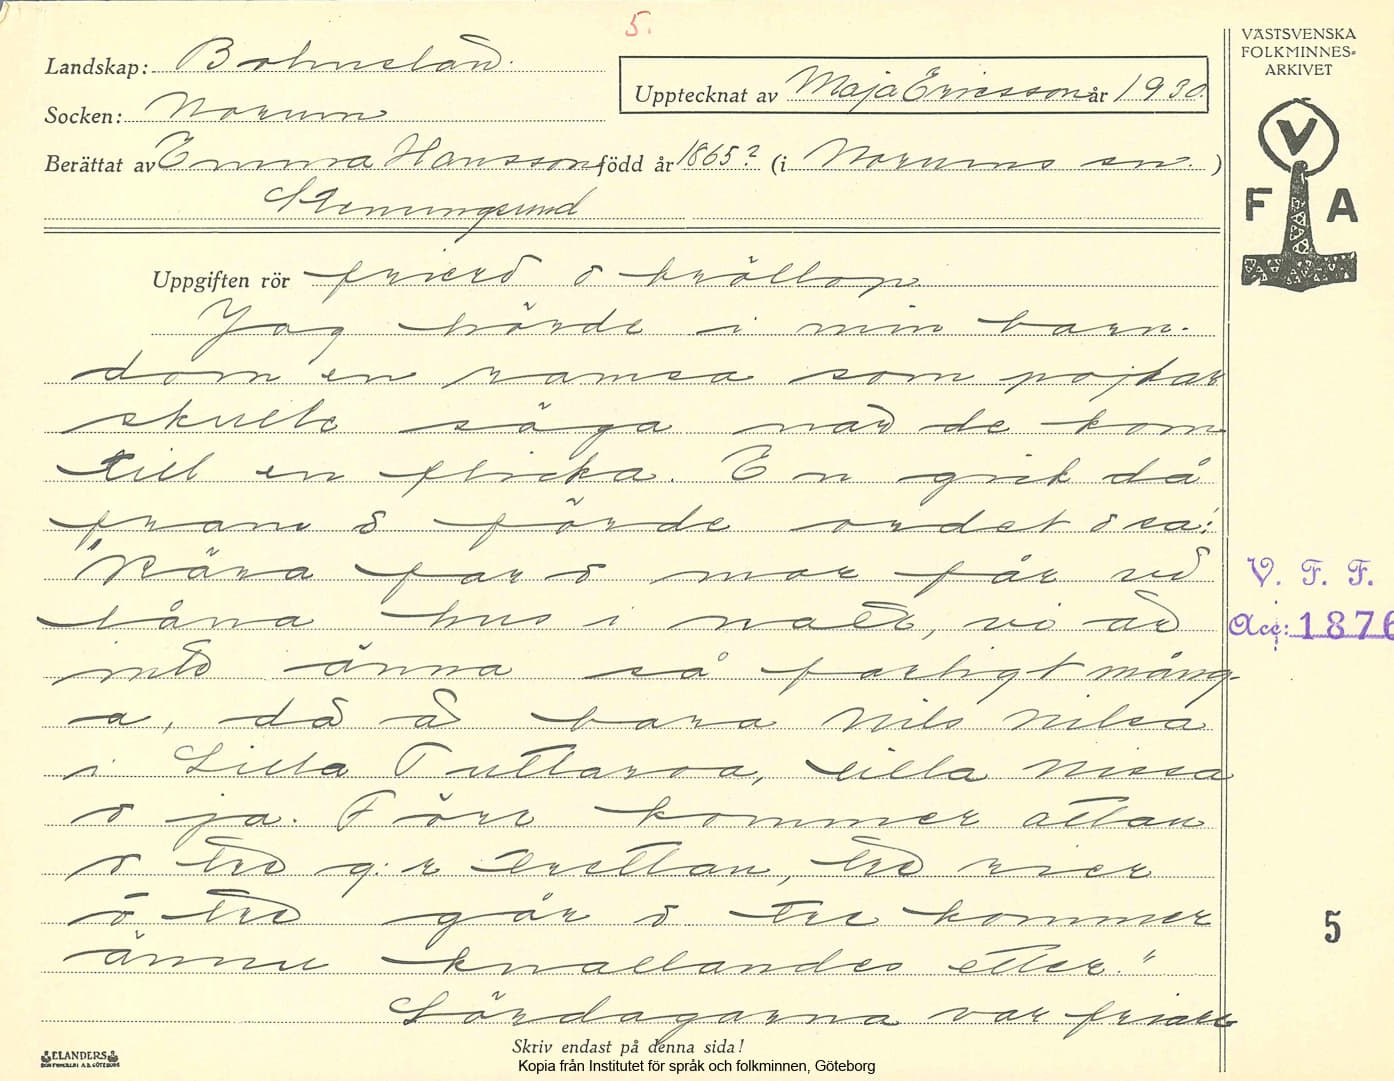 5.
VÄSTSVENSKA
FOLKMINNES-
ARKIVET
Landskap: Bohuslän.
Upptecknat av Maja Ericsson år 1930.
Socken: Norum
Berättat av Emma Hansson född år 1865? (i Norums sn. )
Stenungsund
V
F A
Uppgiften rör frieri o bröllop
Jag hörde i min barn-
dom en ramsa som pojkar
skulle säga när de kom
till en flicka. En gick då
fram o förde ordet o sa:
"Kära far o mor får vi
låna hus i natt, vi är
inte änna så farligt mång-
a, då ä bara Nils Nilsa
i Lilla Tuttaroa, lilla Nissa
o ja. Före kommer attan
o tre g:r trettan, tre rier
o tre går o tre kommer
ännu knallandes etter."
Lördagarna var friare
V. F. F.
Acc: 1876
5
Skriv endast på denna sida!
ELANDERS
Kopia från Institutet för språk och folkminnen, Göteborg